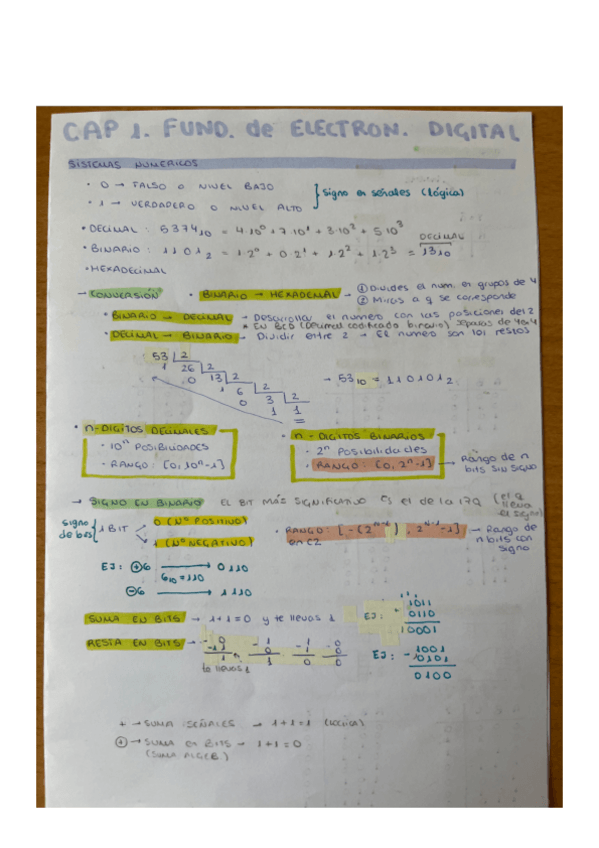 CAP 1. FUND. de ELECTRON. DIGITAL
SISTEMAS NUMERICOS
• 0 → FALSO O NIVEL BAJO
• 1 → VERDADERO O NIVEL ALTO
} Signo en señales (lógica)
• DECIMAL : 5374₁₀ = 4·10⁰ + 7·10¹ + 3·10² + 5·10³
• BINARIO : 1101₂ = 1·2⁰ + 0·2¹ + 1·2² + 1·2³ = 13₁₀
DECIMAL
• HEXADECIMAL
→ CONVERSIÓN
• BINARIO → HEXADEMAL → ① Divides el num. en grupos de 4
② Miras a q se corresponde
• BINARIO → DECIMAL → Desarrollar el numero con las posiciones del 2
* EN BCD (Decimal codificado binario) separas de 4 en 4
• DECIMAL → BINARIO → Dividir entre 2 → El numero son los restos
53 2
1 26 2
0 13 2
1 6 2
0 3 2
1 1
→ 53₁₀ = 110101₂
• n-DIGITOS DECIMALES
• 10ⁿ POSIBILIDADES
• RANGO : [0, 10ⁿ-1]
• n-DIGITOS BINARIOS
• 2ⁿ Posibilidades
• RANGO : [0, 2ⁿ-1] → Rango de n
bits SIN SIGNO
→ SIGNO EN BINARIO EL BIT MÁS SIGNIFICATIVO ES el de la izq (el q
lleva
el signo)
Signo
de bits { 1 BIT
0 (Nº POSITIVO)
1 (Nº NEGATIVO)
• RANGO : [-(2ⁿ⁻¹), 2ⁿ⁻¹-1] → Rango de
en C2
n bits con
signo
EJ : ⊕6 → 0110
6₁₀ = 110
⊖6 → 1110
SUMA EN BITS → 1+1=0 y te llevas 1
EJ :
1011
+ 0110
10001
RESTA EN BITS →
- 0 - 1 - 1 - 0
1 0 1 0
1 1 0 0
te llevas 1
EJ :
- 1001
0101
0100
+ → SUMA SEÑALES → 1+1=1 (lógica)
⊕ → SUMA EN BITS → 1+1=0
(SUMA ALGEB)